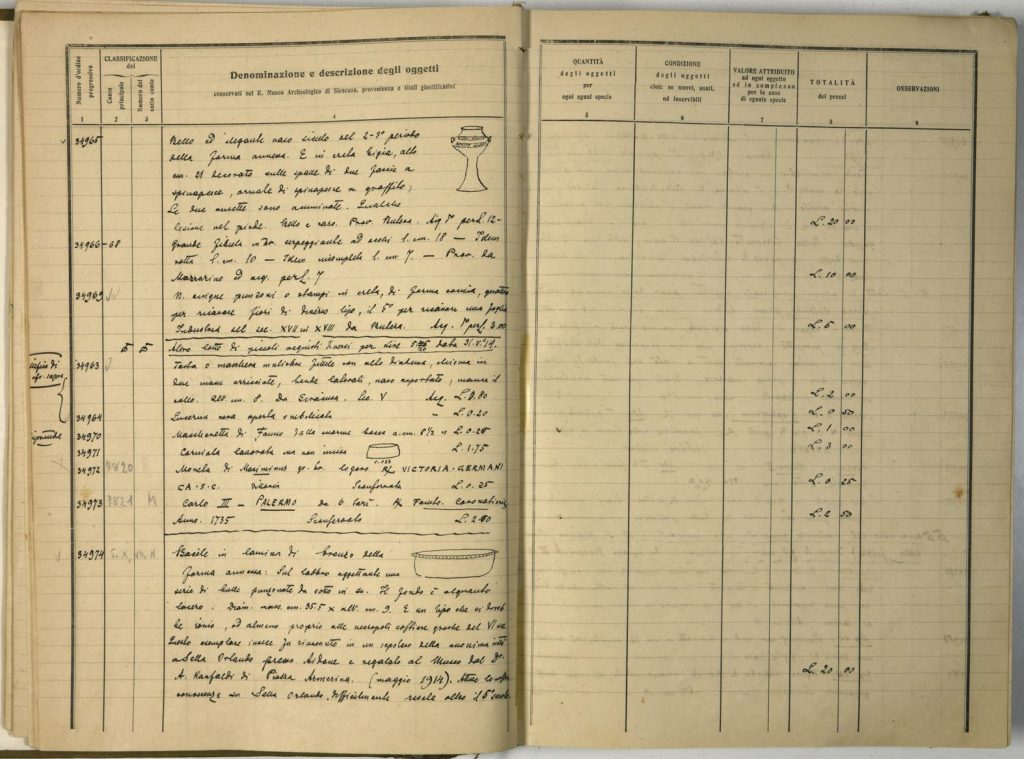 Numero d'ordine progressivo
CLASSIFICAZIONE
dei
Conto principale
Numero del sotto conto
Denominazione e descrizione degli oggetti
conservati nel R. Museo Archeologico di Siracusa, provenienza e titoli giustificativi
1 2 3 4
34965 Bello ed elegante vaso siculo del 2-3° periodo
della forma annessa. E in creta bigia, alto
cm. 21 decorato sulle spalle di due fascie a
spinapesce, ornate di spinapesce a graffito;
Le due ansette sono Qualche
lesione nel piede. Bello e raro. Prov. Butera. Acq. per L. 12-
34966-68 Grande fibula serpeggiante ad occhi l. cm. 18 — Idem
rotta l. cm. 10 — Idem incompleta l. cm. 7. — Prov. da
Mazzarino ed acq. per L. 7
34969 N. cinque punzoni o stampi in creta, di forma conica, quattro
per ricavare fiori di diverso tipo, il 5° per ricavare una foglia
Industria del sec. XVII al XVIII da Butera. Acq. per L. 3.00
5 5 Altro lotto di piccoli acquisti diversi per Lire data 31.V.'14.
34963 Testa o maschera muliebre fittile con alto diadema, chioma in
due masse arricciate, bende laterali, naso asportato, manca il
collo. alt. cm. 8. Da Siracusa. Sec. V Acq. L. 0.80
34964 Lucerna nera aperta ombelicata " L. 0.20
34970 Mascheretta di Fauno dalla enorme bocca a. cm. 8½ " L. 0.25
34971 Corniola lavorata ma non incisa L. 1.75
34972 7820 Moneta di Maximinus gr. br. logoro VICTORIA·GERMANI
CA·S·C. Vittoria Sconservata L. 0.25
34973 7821 M Carlo III — PALERMO da 6 tarì. Fausto Coronationis
Anno. 1735 Sconservato
34974 Bacile in lamina di bronzo della
forma annessa: Sul labbro aggettante una
serie di bulle punzonate da sotto in su. Il fondo è alquanto
lacero. Diam. mass. cm. 35.5 x alt. cm. 9. E un tipo che si direb
be ionio, ed almeno proprio alle necropoli costiere greche del VI sec.
Questo esemplare invece fu rinvenuto in un sepolcro della anonima città
a Sella Orlando presso Aidone e regalato al Museo dal Dr.
A. Ranfaldi di Piazza Armerina. (maggio 1914).
in Sella Orlando difficilmente risale oltre il 5° secolo
QUANTITÀ
degli oggetti
per
ogni eguali specie
CONDIZIONE
degli oggetti
cioè: se nuovi, usati,
od inservibili
VALORE ATTRIBUITO
ad ogni oggetto
ed in complesso
per le cose
di eguale specie
TOTALITÀ
dei prezzi
OSSERVAZIONI
5 6 7 8 9
L. 20 00
L. 10 00
L. 5 00
L. 2 00
L. 0 50
L. 1 00
L. 3 00
L. 0 25
L. 2 50
L. 20 00